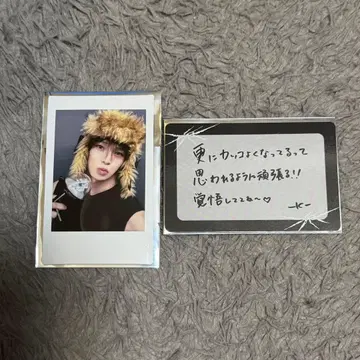 更にカッコよくなってるって
思われるように頑張る!!
覚悟しててね〜♡
-K-